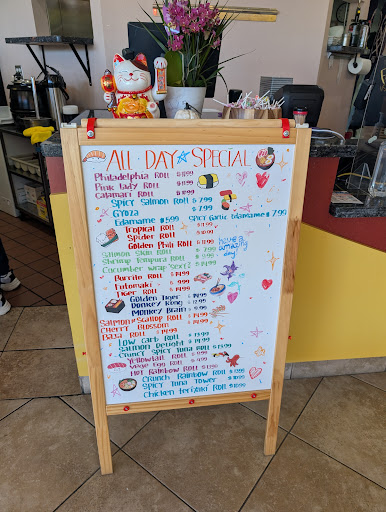 ALL DAY SPECIAL
Philadelphia Roll
Pink lady Roll
Calamari Roll
Spicy Salmon Roll $ 7.99
Gyoza $ 7.99
Edamame $ 5.99 Spicy Garlic Edamame $ 7.99
Tropical Roll
Spider Roll $ 10.99
Golden Phili Roll $ 11.99
Salmon Skin Roll $ 7.99
Shrimp Tempura Roll
Cucumber wrap
Burrito Roll $ 14.99
Futomaki
Tiger Roll $ 14.99
Golden Tiger
Donkey Kong
Monkey Brain
Salmon Scallop Roll $ 14.99
Cherry Blossom
Baja Roll $ 14.99
Low carb Roll $ 13.99
Salmon Delight $ 14.99
Crunchy Spicy Tuna Roll
Yellowtail Roll
Vegie Egg Roll
Hot Rainbow Roll
Crunch Rainbow Roll
Spicy Tuna Tower
Chicken teriyaki Roll
have a
amazing
day